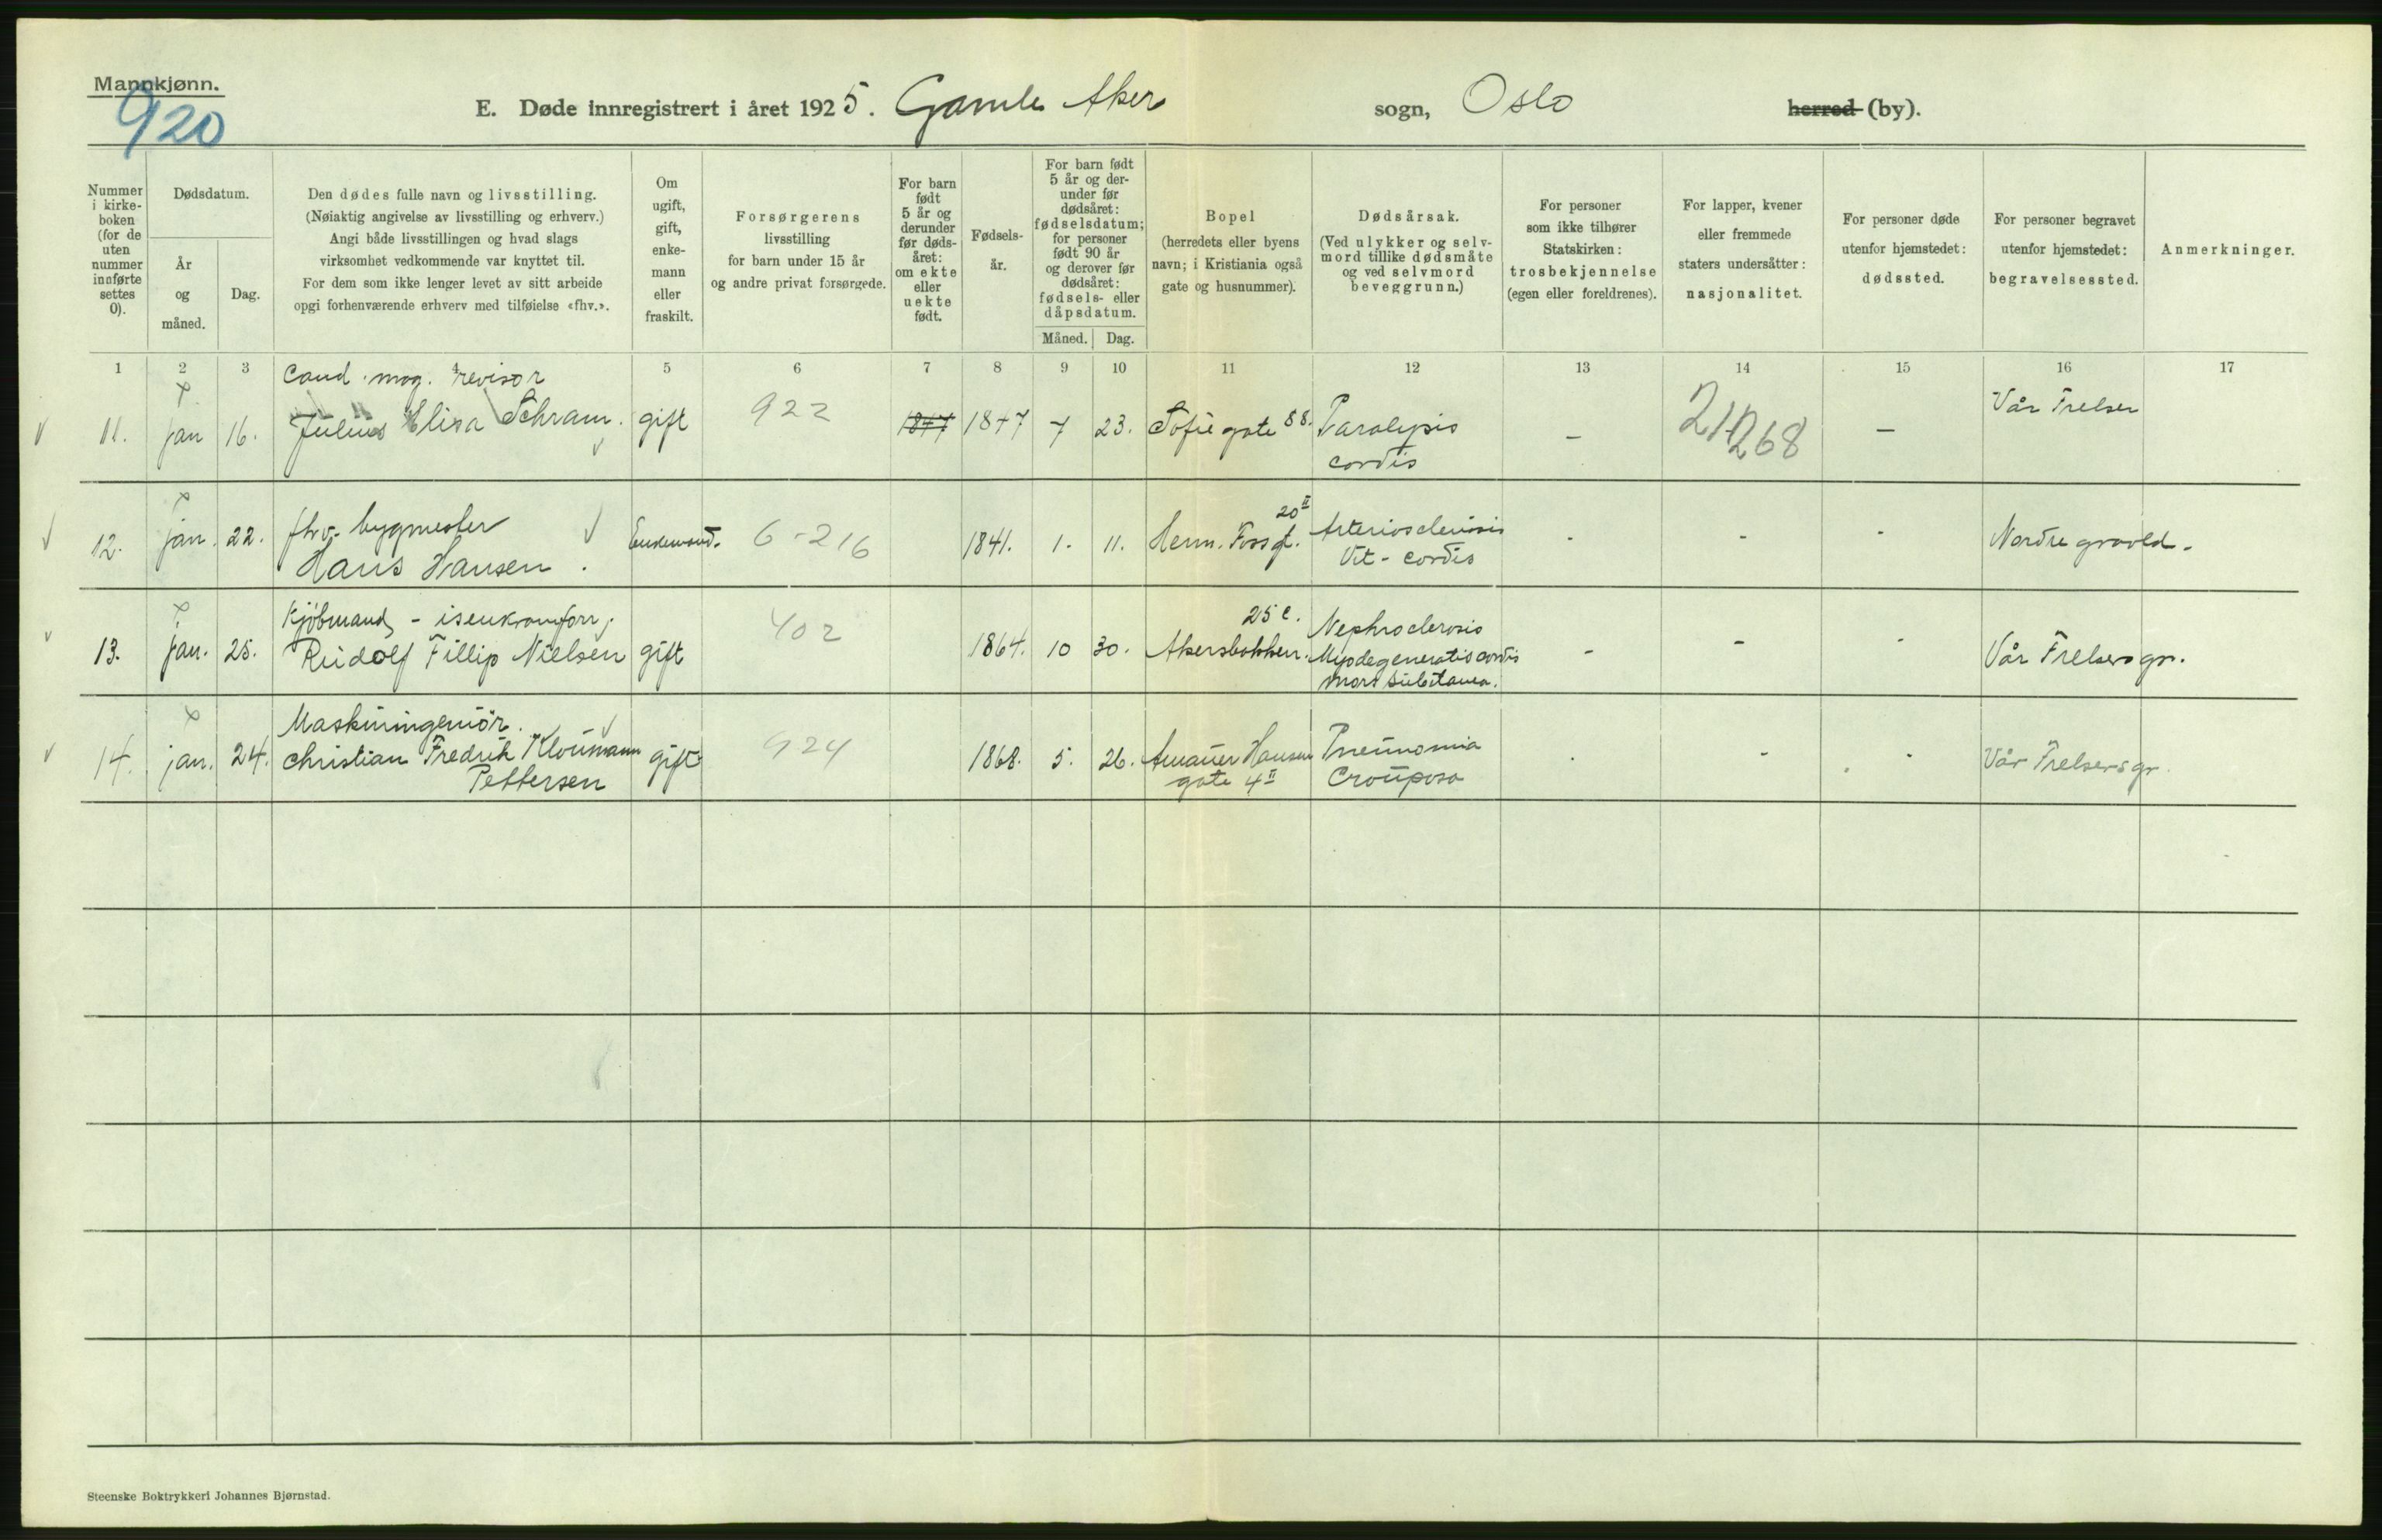 Mannkjønn.
920
E. Døde innregistrert i året 1925. Gamle Aker sogn, Oslo herred (by).
Nummer i kirke-boken (for de uten nummer innførte settes 0).
Dødsdatum.
År og måned.
Dag.
Den dødes fulle navn og livsstilling.
(Nøiaktig angivelse av livsstilling og erhverv.)
Angi både livsstillingen og hvad slags
virksomhet vedkommende var knyttet til.
For dem som ikke lenger levet av sitt arbeide
opgi forhenværende erhverv med tilføielse «fhv.».
Om ugift, gift, enke-mann eller fraskilt.
Forsørgerens
livsstilling
for barn under 15 år
og andre privat forsørgede.
For barn født 5 år og derunder før døds-året: om ekte eller uekte født.
Fødsels-år.
For barn født 5 år og der-under før dødsåret: fødselsdatum; for personer født 90 år og derover før dødsåret: fødsels- eller dåpsdatum.
Måned. Dag.
Bopel
(herredets eller byens
navn; i Kristiania også
gate og husnummer).
Dødsårsak.
(Ved ulykker og selv-
mord tillike dødsmåte
og ved selvmord
beveggrunn.)
For personer
som ikke tilhører
Statskirken:
trosbekjennelse
(egen eller foreldrenes).
For lapper, kvener
eller fremmede
staters undersåtter:
nasjonalitet.
For personer døde
utenfor hjemstedet:
dødssted.
For personer begravet
utenfor hjemstedet:
begravelsessted.
Anmerkninger.
1 2 3 4 5 6 7 8 9 10 11 12 13 14 15 16 17
Cand. mag. revisor
11. jan 16. Julius Elisa Schram. gift 922 1847 1847 7 23. Sofie gate 88. Paralysis cordis - 21268 - Vår Frelser
fhv. bygmester
12. jan. 22. Hans Hansen. Enkemand. 6-216 1841. 1. 11. Herm. Foss gt. 20 II Arteriosclerosis Vit-cordis - - - Nordre gravld.
Kjøbmand - isenkramforr.
13. jan. 25. Rudolf Fillip Nielsen gift 402 1864. 10 30. Akersbakken. 25 c. Nephrosclerosis Myodegeneratio cordis mors subitanea. - - - Vår Frelsers gr.
Maskiningeniör.
14. jan. 24. Christian Fredrik Kloumann Pettersen gift 924 1868. 5. 26. Amauer Hansen gate 4 II Pneumonia Crouposa - - - Vår Frelsers gr.
Steenske Boktrykkeri Johannes Bjørnstad.